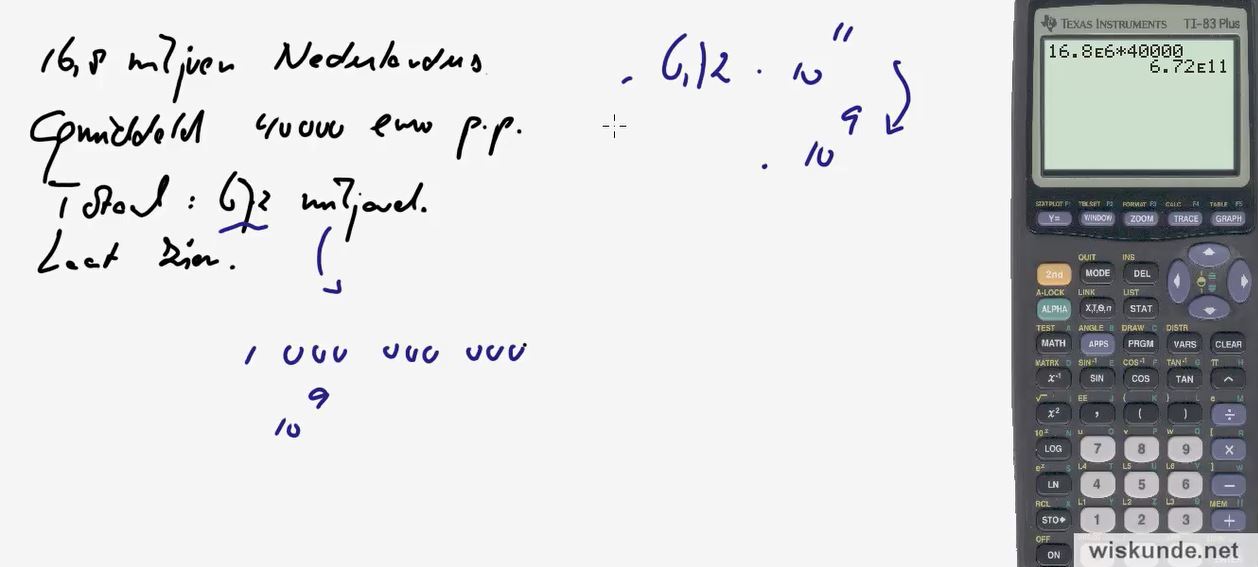 16,8 miljoen Nederlanders
Gemiddeld 40 000 euro p.p.
Totaal : 672 miljard.
Laat zien.
1 000 000 000
10⁹
6,72 · 10¹¹
· 10⁹
TEXAS INSTRUMENTS TI-83 Plus
16.8E6*40000
6.72E11
STAT PLOT F1 TBLSET F2 FORMAT F3 CALC F4 TABLE F5
Y= WINDOW ZOOM TRACE GRAPH
QUIT INS
2nd MODE DEL
A-LOCK LINK LIST
ALPHA X,T,Θ,n STAT
TEST A ANGLE B DRAW C DISTR
MATH APPS PRGM VARS CLEAR
MATRX D SIN⁻¹ E COS⁻¹ F TAN⁻¹ G π H
x⁻¹ SIN COS TAN ^
√ I EE J { K } L e M
x² , ( ) ÷
10ˣ N u O v P w Q [ R
LOG 7 8 9 ×
eˣ S L4 T L5 U L6 V ] W
LN 4 5 6 −
RCL X L1 Y L2 Z L3 θ MEM "
STO▸ 1 2 3 +
OFF
ON
wiskunde.net